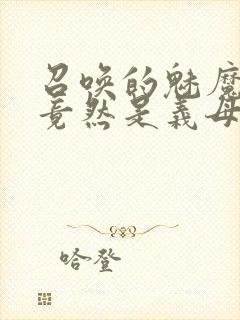 召唤的魅魔
竟然是义母
哈登